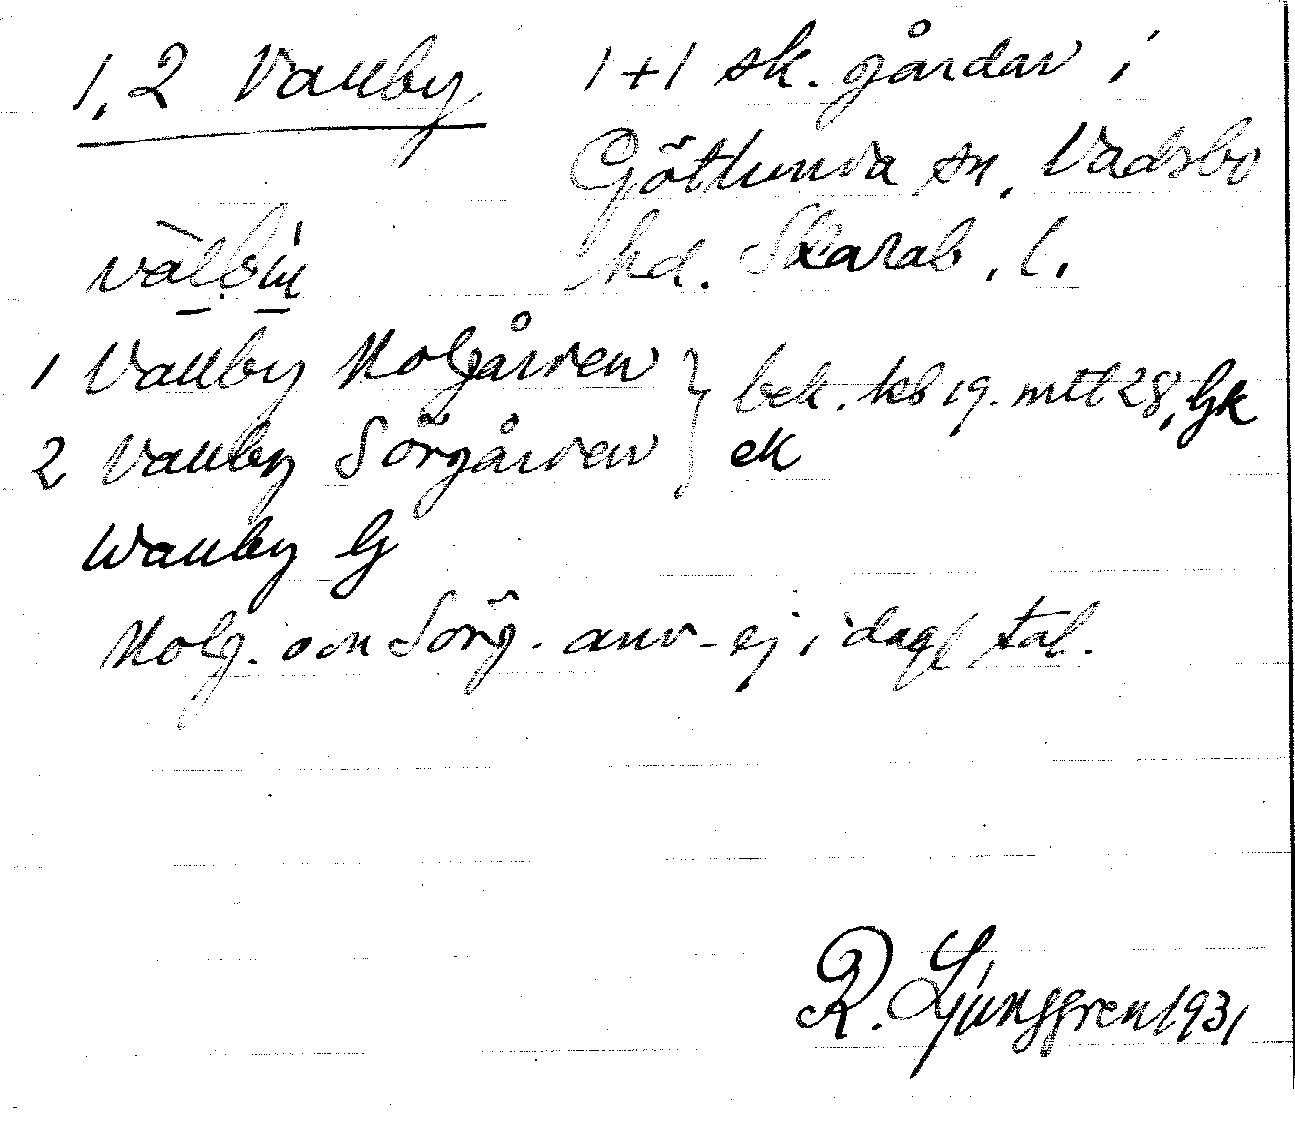 1,2 Vallby
1+1 sk. gårdar i
Götlunda sn, Vadsbo
hd. Skarab. l.
1 Vallby Nolgården
2 Vallby Sörgården
bek. kb 19. mtl 28, Gk
ek
Wallby G
Nolg. och Sörg. anv. ej i dagl tal.
R. Ljunggren 1931